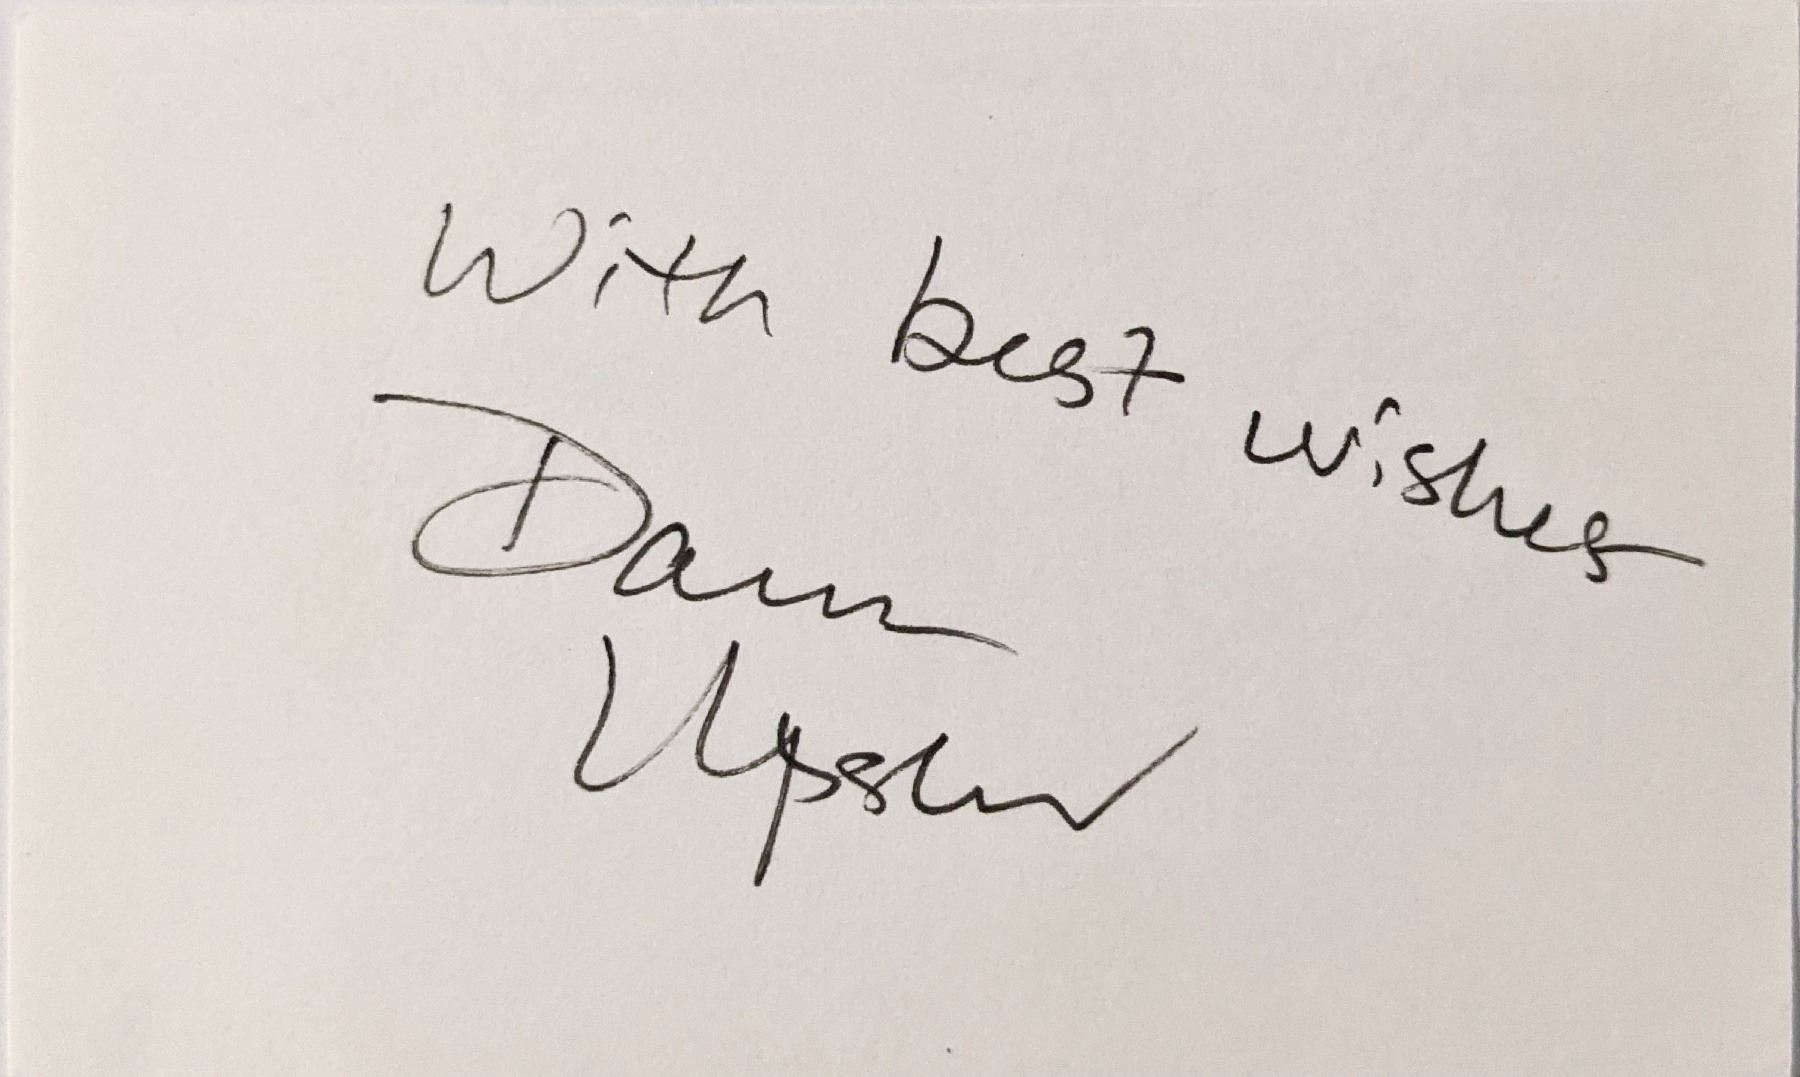 With best wishes
Dawn
Upshaw